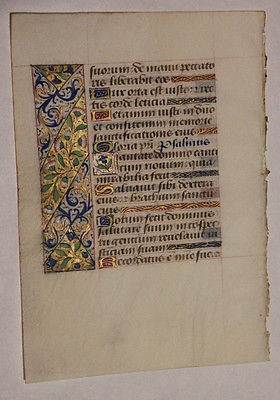 suorum de manu peccato
ris liberabit eos
Lux orta est iusto et re
ctis corde leticia
Letamini iusti in dño
et confitemini memorie
sanctificationis eius
Gloria pri Psalmus
Cantate domino canti
cum nouum quia
mirabilia fecit
Saluauit sibi dextera
eius et brachium sanctū
eius
Notum fecit dominus
salutare suum in conspec
tu gentium reuelauit iu
sticiam suam
Recordatus e mie sue